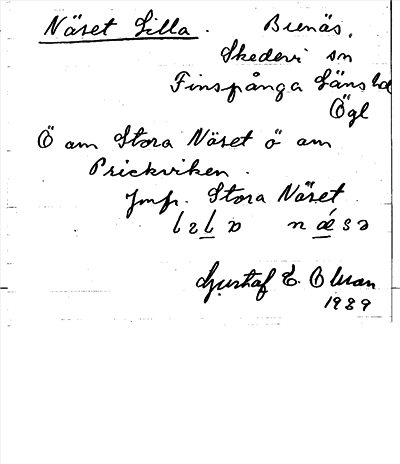 Näset Lilla. Brenäs,
Skedevi sn
Finspånga Läns hd
Ögl
Ö om Stora Näset ö om
Prickviken.
Jmfr. Stora Näset
næsə
Gustaf E. Olsson
1939